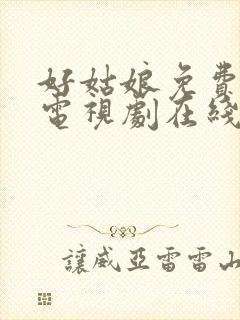 好姑娘免費
電視劇在綫
讓威亞雷雷山